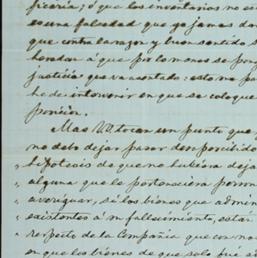 ficaria; ó que los inventarios no es
es una falsedad que yo jamas da
que contra la razon y buen sentido s
honda á que por lo menos se pon
justicia que va anotado; esto no pa
he de intervenir en que se coloque
porcion.
Mas VV. tocan un punto que
no debo dejar pasar desapercibido
hipotesis de que no hubiera deja
" alguna que le perteneciera porron
" averiguar, si los bienes que admin
" existentes á su fallecimiento, están
" respecto de la Compañia que con no
" en que los bienes de que solo fué